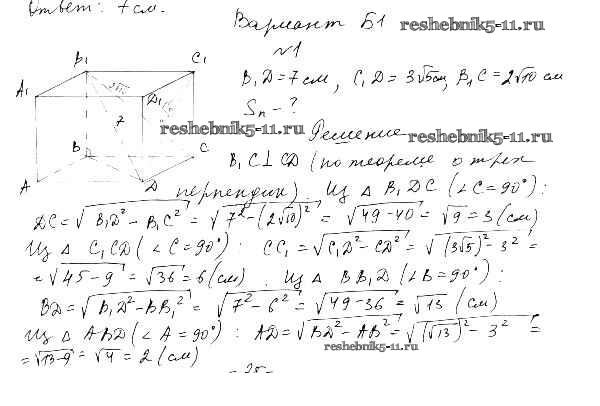 Ответ: 7 см.
Вариант Б1 reshebnik5-11.ru
№1
B₁D = 7 см, C₁D = 3√5 см, B₁C = 2√10 см
Sп - ?
reshebnik5-11.ru
Решение reshebnik5-11.ru
B₁C ⊥ CD (по теореме о трех
перпендик). Из △ B₁DC (∠C = 90°):
DC = √(B₁D² - B₁C²) = √(7² - (2√10)²) = √(49 - 40) = √9 = 3 (см)
Из △ C₁CD (∠C = 90°): CC₁ = √(C₁D² - CD²) = √((3√5)² - 3²) =
= √(45 - 9) = √36 = 6 (см). Из △ BB₁D (∠B = 90°):
BD = √(B₁D² - BB₁²) = √(7² - 6²) = √(49 - 36) = √13 (см)
Из △ ABD (∠A = 90°): AD = √(BD² - AB²) = √((√13)² - 3²) =
= √(13 - 9) = √4 = 2 (см)
reshebnik5-11.ru
B₁ C₁
A₁ D₁
7
B C
A D